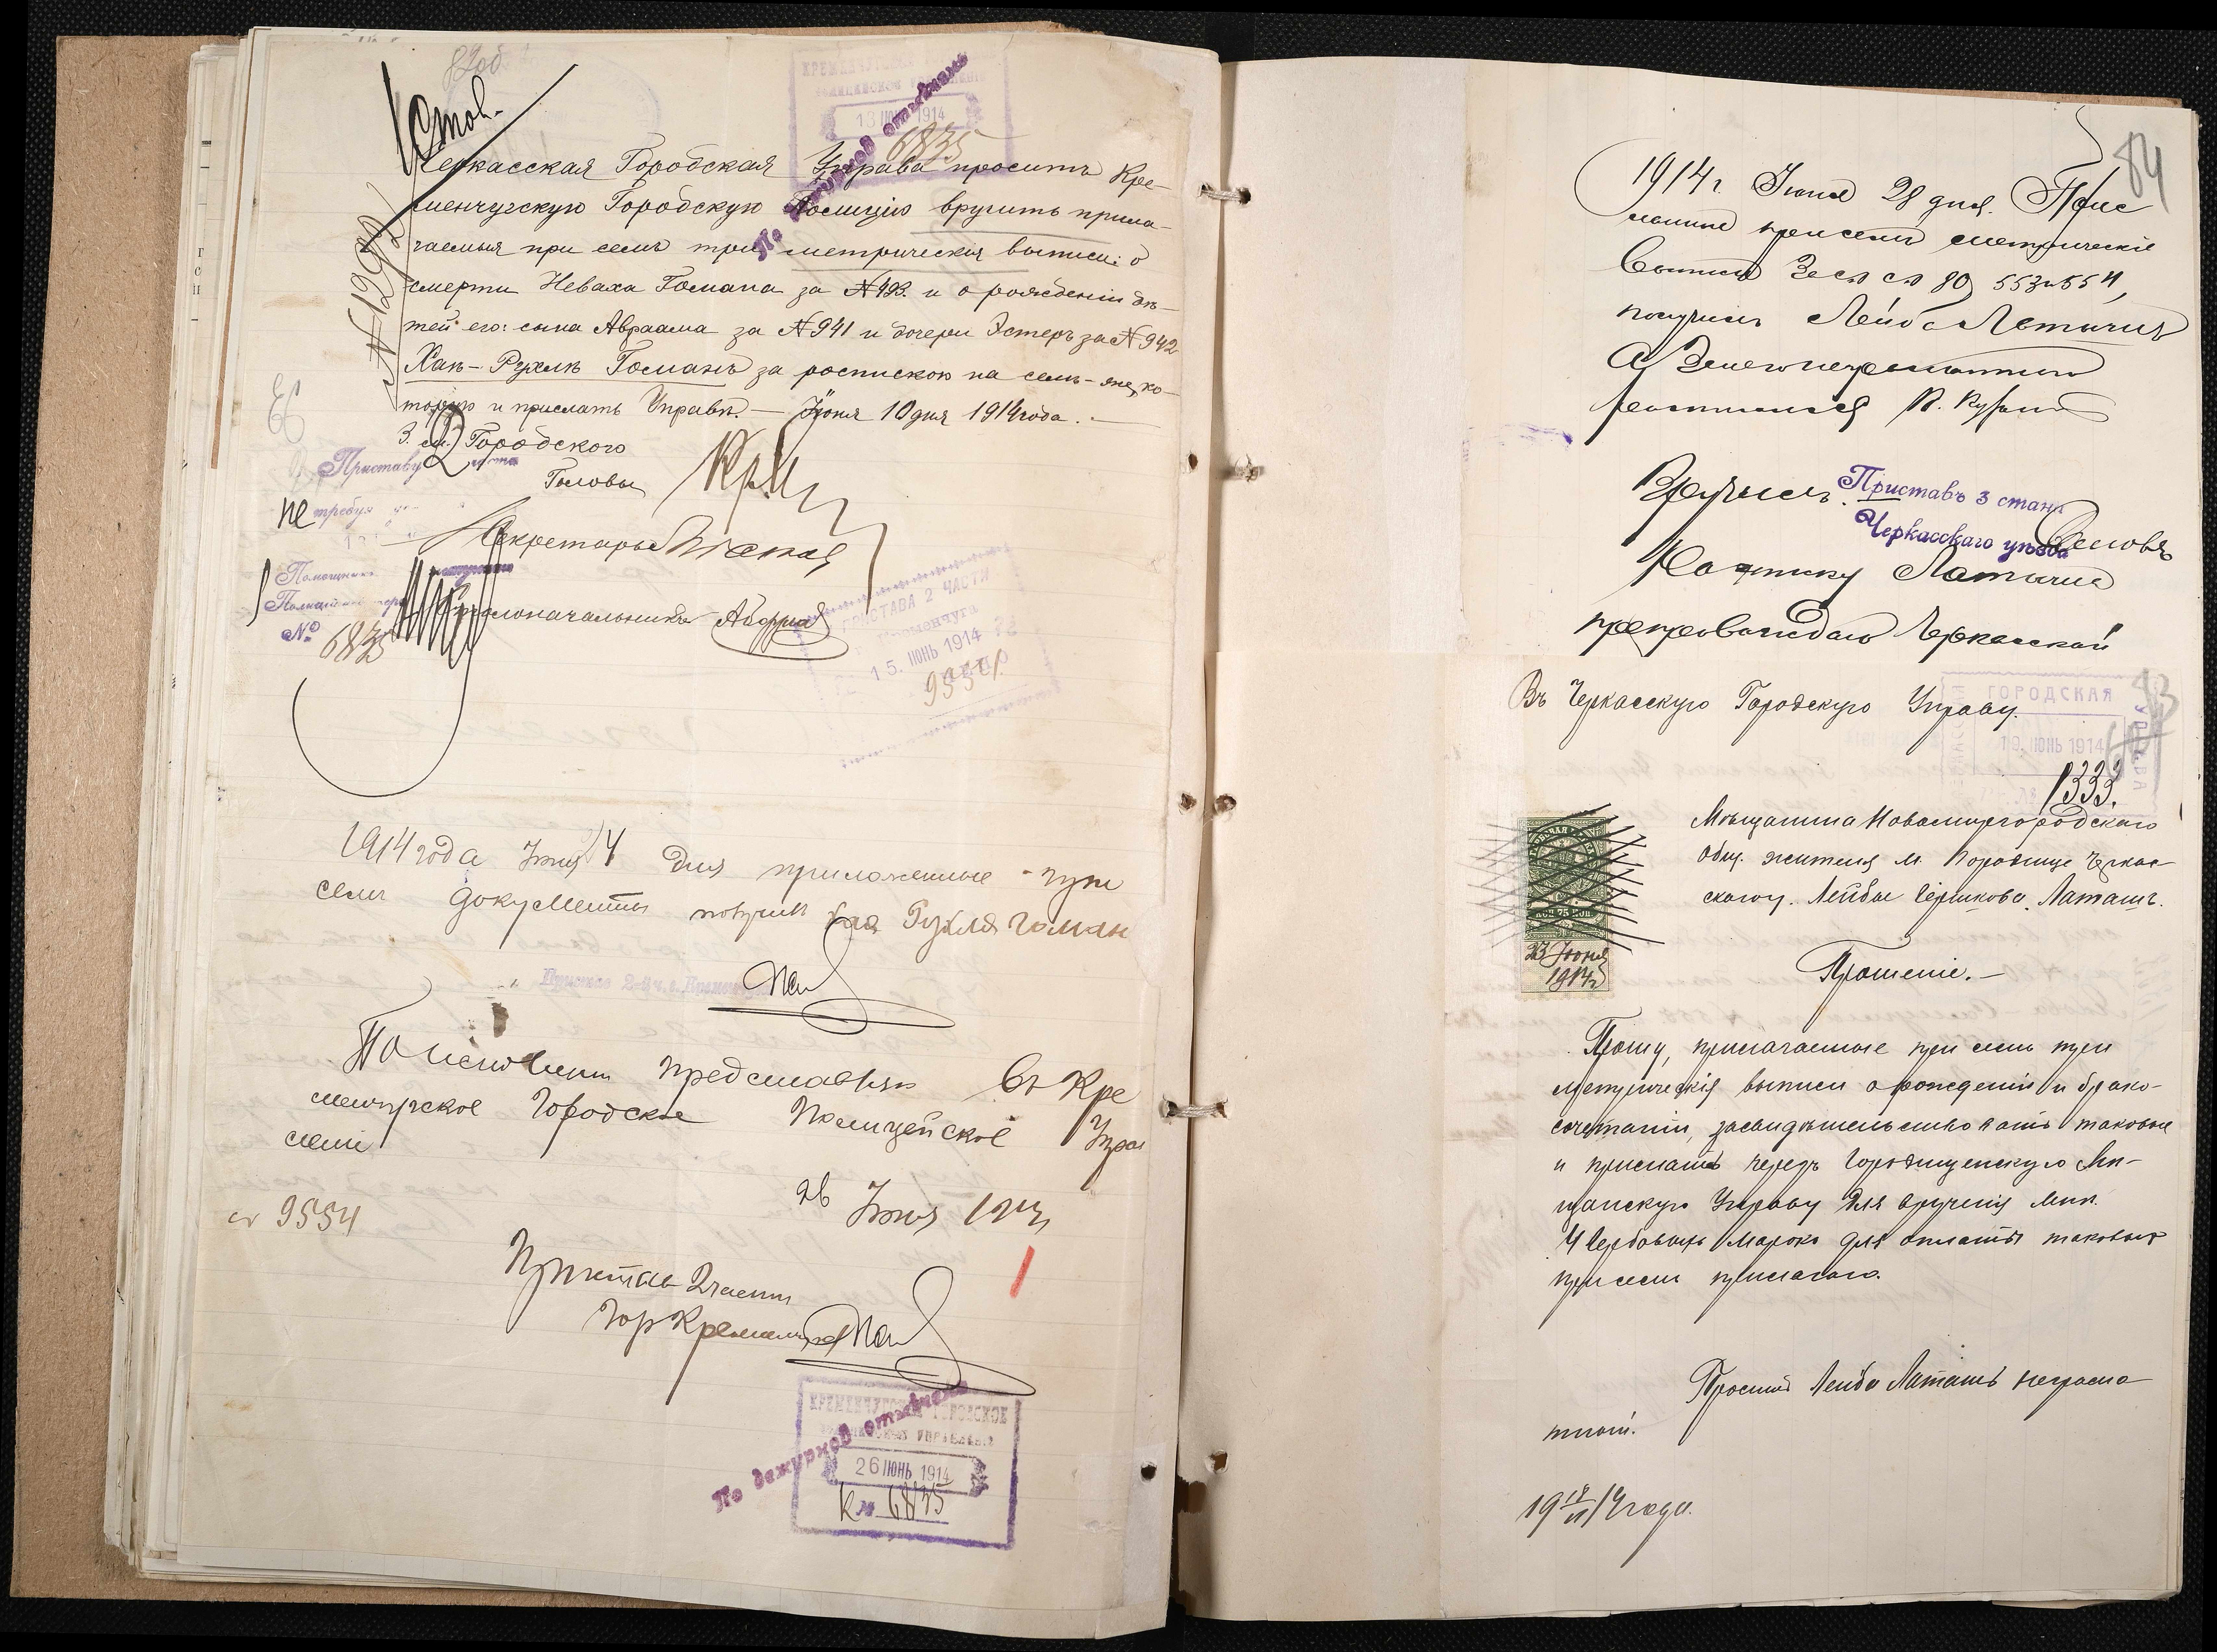 82об.
Стол.
КРЕМЕНЧУГСКОЕ
13 ИЮН 1914
6835
По дежурнов отмечень
№ 1292
Черкасская Городская Управа просить Кре-
менчугскую Городскую Полицію вручить прила-
гаемыя при семъ три метрическія выписи: о
смерти Неваха Гомана за №193. и о рожденіи дѣ-
тей его: сына Авраама за №941 и дочери Эстеръ за №942
Хаѣ-Рухлѣ Гоманъ за роспискою на семъ-же, ко-
торую и прислать Управѣ. — Іюня 10 дня 1914 года. -
З. см. Городского
Головы
Приставу 2 части
не требуя
Секретарь
Помощникъ
Полицеймейстера
Столоначальникъ
№ 6835
ПРИСТАВА 2 ЧАСТИ
Кременчуга
15. ИЮНЬ 1914
9554
1914 года Іюня 24 дня приложенные при
семъ документы получила Хая Рухля Гоман
Приставъ 2-й ч. г. Кременчуга
По исполненіи представляю въ Кре
менчугское Городское Полицейское Управ
леніе
26 Іюня 1914
№ 9554
Приставъ 2 части
Гор Кременчуга
КРЕМЕНЧУГСКОЕ ГОРОДСКОЕ
ПОЛИЦЕЙСКОЕ УПРАВЛЕНІЕ
26 ИЮНЬ 1914
К № 6835
По дежурнов отмечень
84
1914 г. Іюня 28 дня.
при семъ метрическіе
выписи за № № 80, 553 и 554,
получилъ Лейба Латышъ
А за неграмотного
росписался
Вручилъ.
Приставъ 3 стана
Черкасскаго уѣзда
препровождаю Черкасской
83
Въ Черкасскую Городскую Управу.
ГОРОДСКАЯ
УПРАВА
19. ИЮНЬ 1914
1333.
Мѣщанина Новомиргородскаго
Общ. жителя м. Городище Черкас-
скаго у. Лейбы Берикова Латашъ.
75 КОП.
23 Іюня
1914 г
Прошеніе. —
Прошу, прилагаемые при семъ три
метрическія выписи о рожденіи и брако-
сочетаніи, засвидѣтельствовать таковые
и прислать черезъ Городищенскую Мѣ-
щанскую Управу для врученія мнѣ.
4 гербовыхъ марокъ для оплаты таковыхъ
при семъ прилагаю.
Проситъ Лейба Латашъ неграмо-
тный.
19 18/VI 14 года.